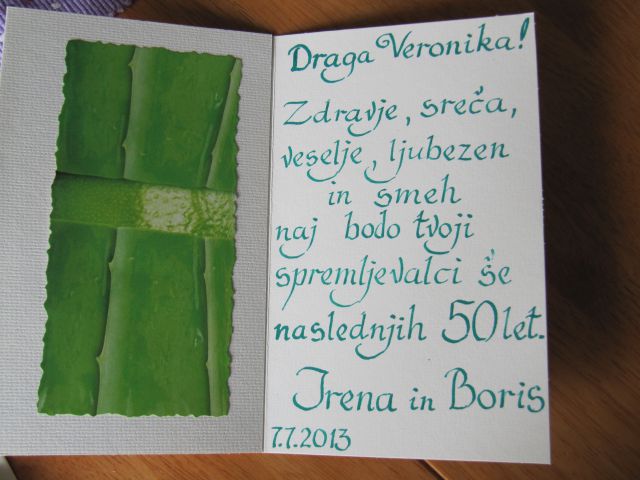 Draga Veronika!
Zdravje, sreča,
veselje, ljubezen
in smeh
naj bodo tvoji
spremljevalci še
naslednjih 50 let.
Irena in Boris
7.7.2013